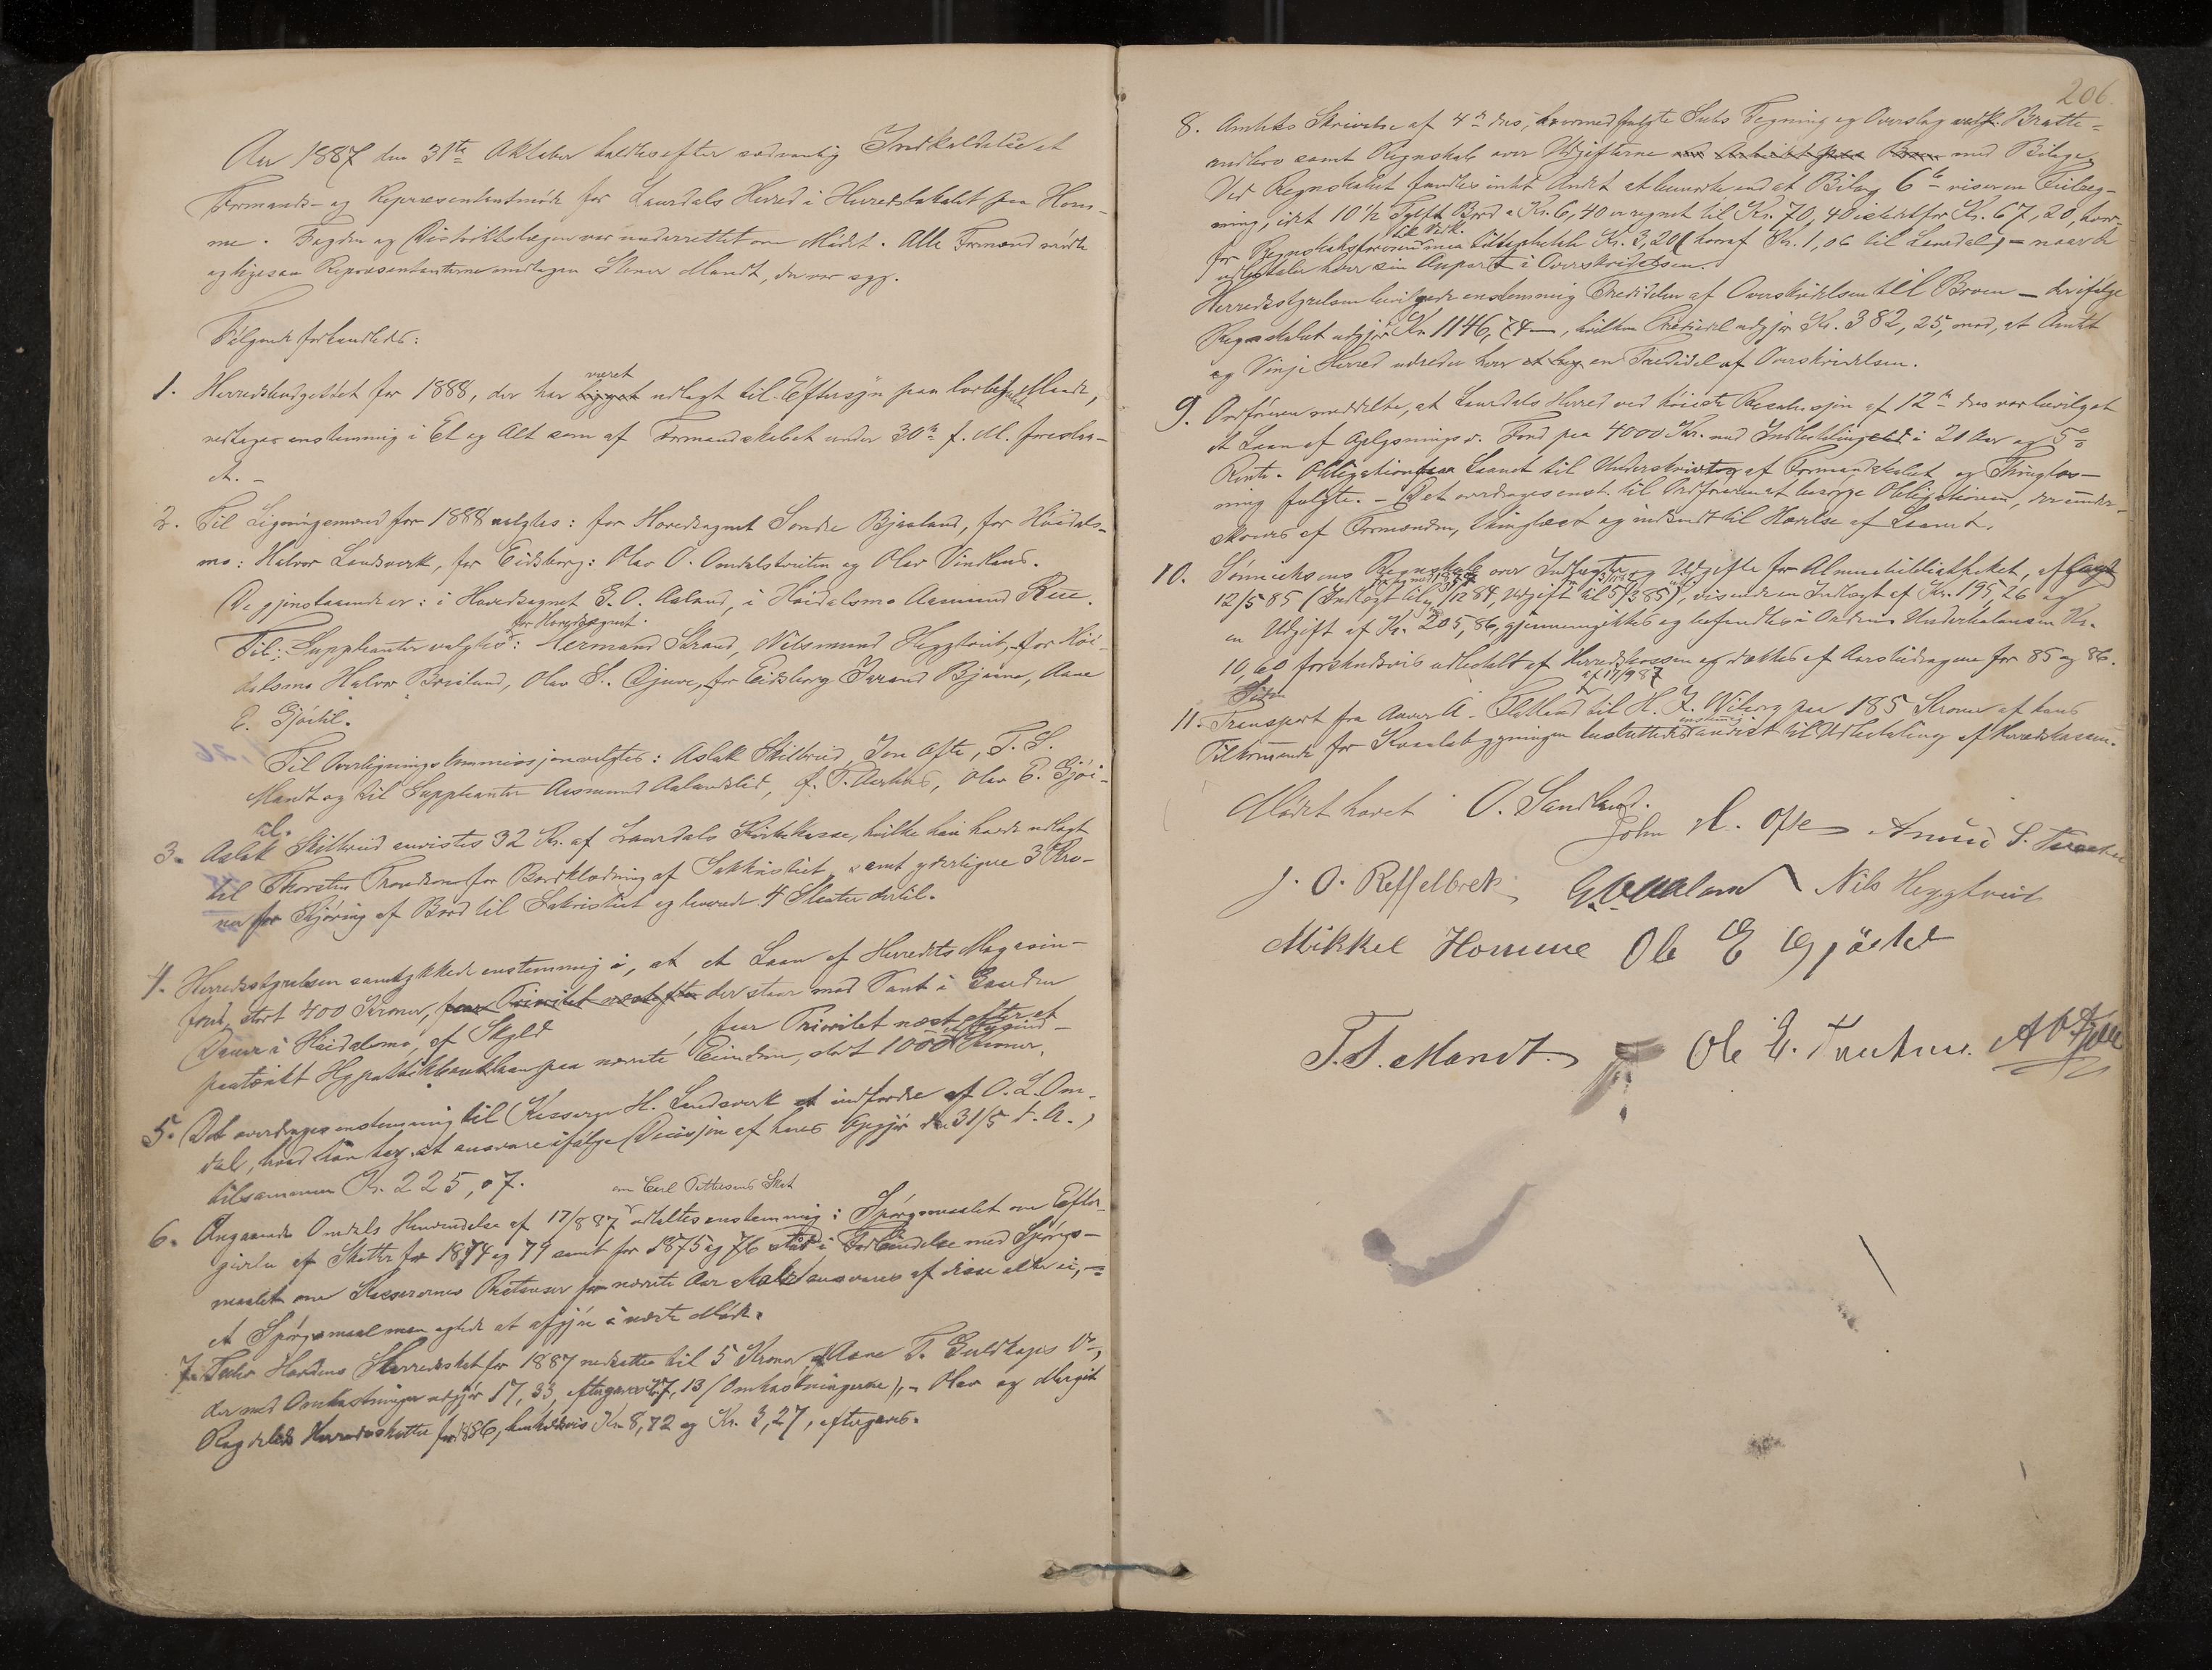 Aar 1887 den 31te Oktober holdtes efter sedvanlig Indkaldelse et
Formands- og Repræsentantmöde for Laurdals Herred i Herredslokalet paa Hom-
me. Fogden og Distriktslægen var underrettet om Mödet. Alle Formænd mödte
og ligesaa Repræsentanterne undtagen Steinar Mandt, der var syg.
Fölgende forhandledes:
1. Herredsbudgettet for 1888, der har været udlagt til Eftersyn paa lovbefalet Maade,
vedtages enstemmig i Et og Alt som af Formandskabet under 30te f. M. foreslaa-
et. -
2. Til Ligningsmænd for 1888 valgtes: for Hovedsognet Sondre Bjaaland, for Höidals-
mo: Halvor Landsverk, for Eidsborg: Olav O. Omdalstveiten og Olav Vindlaus.
De gjenstaaende er: i Hovedsognet G. O. Aaland, i Höidalsmo Aasmund Rue.
for Hovedsognet.
Til Suppleanter valgtes: Hermand Strand, Nils Heggtveit, for Höi-
dalsmo Halvor Bræland, Olav S. Djuve, for Eidsborg Tarand Bjaano, Aane
E. Gjöstil.
Til Overligningskommissjon valgtes: Aslak Skilbreid, Jon Ofte, T. S.
Mandt og til Suppleanter Aasmund Aalandslid, J. T. Aarhus, Olav E. Gjös-
til.
3. Aslak Skilbreid anvistes 32 Kr. af Laurdals Kirkekasse, hvilke han havde udlagt
til Thorstein Trondsen for Bordklædning af Sakristiet, samt yderligere 3 Kro-
ner for Kjöring af Bord til Sakristiet og leverede 4 Slaater dertil.
4. Herredsstyrelsen samtykkede enstemmig i, at et Laan af Herredets Magasin-
fond, stort 400 Kroner, der staar mod Pant i Gaarden
Djuve i Höidalsmo, af Skyld , faar Prioritet næst efter et
paatænkt Hypothekbanklaan paa nævnte Eiendom, stort 1000 et Tusind Kroner.
5. Det overdrages enstemmig til Kasserer H. Landsverk at indfordre af O. L. Om-
dal, hvad han har at ansvare ifölge Decisjon af hans Opgjör d. 31/5 d. A.,
tilsammen Kr. 225,07.
om Carl Pettersens Skat
6. Angaaende Omdals Henvendelse af 17/8 87 udtaltes enstemmig: Spörgsmaalet om Efter-
givelse af Skatter for 1874 og 79 samt for 1875 og 76 staar i Forbindelse med Spörgs-
maalet om Kasserernes Restancer for nævnte Aar skal ansvares af disse eller ei, -
et Spörgsmaal man agtede at afgjöre i næste Möde.
7. Herredsskat for 1887 nedsattes til 5 Kroner, Aane T. Guldtops Do,
der med Omkostninger udgjör 17,33, eftergaves 7,13 (Omkostningerne), - Olav og Margit
Herredsskatter for 1886, henholdsvis Kr. 8,72 og Kr. 3,27, eftergaves.
206.
8. Amtets Skrivelse af 4de ds, hvormed fulgte Tegning og Overslag vedk. Bratte-
landsbro samt Regnskab over Udgifterne med Bilage.
Ved Regnskabet fandtes intet Andet at bemærke end at Bilag 6 viser en Feilreg-
ning, idet 10 1/2 Tylft Bord a Kr. 6,40 er regnet til Kr. 70,40 istedetfor Kr. 67,20, hvor-
for Regnskabsföreren tilbagebetale Kr. 3,20 (hvoraf Kr. 1,06 til Laurdal) - naar de
udbetaler hver sin Anpart i Overskridelsen.
Herredsstyrelsen bevilgede enstemmig Trediedelen af Overskridelsen til Broen - der ifölge
Regnskabet udgjör Kr. 1146,74 -, hvilken Trediedel udgjör Kr. 382,25, mod, at Amtet
og Vinje Herred udreder hver en Trediedel af Overskridelsen.
9. Ordföreren meddelte, at Laurdals Herred ved höieste Resolusjon af 12te ds var bevilget
et Laan af Oplysningsv. Fond paa 4000 Kr. med Indbetalingstid i 20 Aar og 5%
Rente. Obligation paa Laanet til Underskrivning af Formandskabet og Thinglæs-
ning fulgte. - Det overdrages enst. til Ordföreren at besörge Obligationen, der under-
skrives af Formændene, thinglæst og indsendt til Hævelse af Laanet.
10. Sönnichsens Regnskab over Indtægter og Udgifter for Almuebibliotheket, aflagt
12/5 85 (Indtægt til 31/12 84, Udgift til 5/3 85), visende en Indtægt af Kr. 195,26 og
en Udgift af Kr. 205,86, gjennemgikkes og befandtes i Orden. Underbalansen Kr.
10,60 forskudsvis udbetalt af Herredskassen og dækkes af Aarsbidragene for 85 og 86.
af 17/9 87
11. Transport fra Aanon A. Flatland til H. J. Wiborg paa 185 Kroner af hans
Tilkommende for Kvaalebygningen besluttedes enstemmig anvist til Udbetaling af Herredskassen.
Mödet hævet O. Sandland.
John A. Ofte
J. O. Reffelbrek G. O. Aaland Nils Heggtveit
Mikkel Homme Ole E Gjöstel
T. S. Mandt. Ole E.